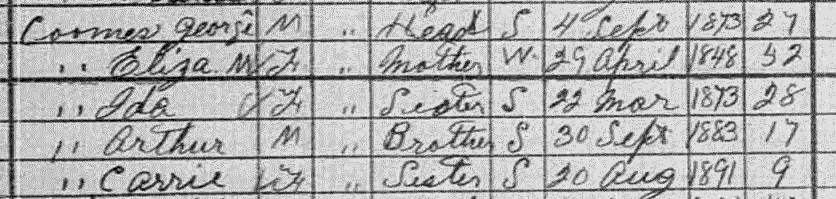 Coomes George M " Head S 4 Sept 1873 27
" Eliza M F " Mother W 29 April 1848 52
" Ida F " Sister S 22 Mar 1873 28
" Arthur M " Brother S 30 Sept 1883 17
" Carrie F " Sister S 20 Aug 1891 9